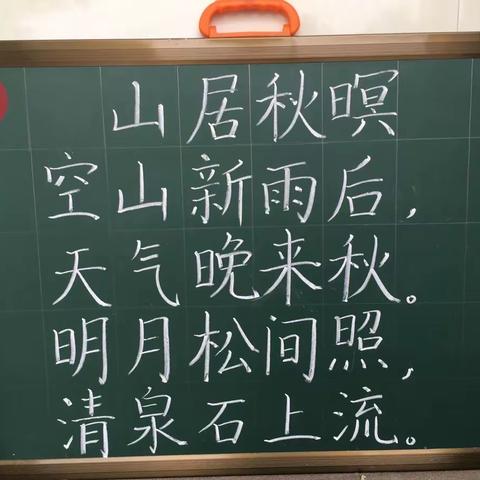 山居秋暝
空山新雨后，
天气晚来秋。
明月松间照，
清泉石上流。